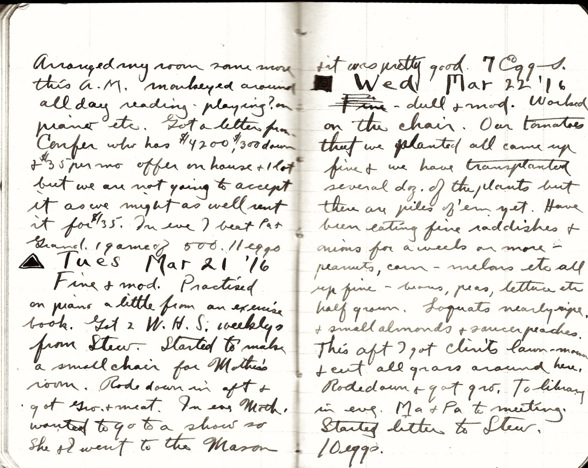 Arranged my room some more
this A.M. monkeyed around
all day reading - playing on
piano etc. Got a letter from
Confer who has $4200 $300 down
+ $35 per mo offer on house + 1 lot
but we are not going to accept
it as we might as well rent
it for $35. In eve I beat Pa +
Grand. 1 game of 500. 11 eggs
Tues Mar 21 '16
Fine + mod. Practised
on piano a little from an exercise
book. Got 2 W.H.S. weeklys
from Stew. Started to make
a small chair for Mothie's
room. Rode down in aft +
got gro. + meat. In eve Moth.
wanted to go to a show so
she + I went to the Mason
+ it was pretty good. 7 Egg-s.
Wed Mar 22 '16
Fine - dull + mod. Worked
on the chair. Our tomatoes
that we planted all came up
fine + we have transplanted
several doz. of the plants but
there are piles of 'em yet. Have
been eating fine raddishes +
onions for a weeks or more -
peanuts, corn - melons etc all
up fine - beans, peas, lettuce etc
half grown. Loquats nearly ripe,
+ small almonds + saucer peaches.
This aft I got Clint's lawn-mow
+ cut all grass around here.
Rode down + got gro. To library
in eve. Ma + Pa to meeting.
Started letter to Stew.
10 eggs.